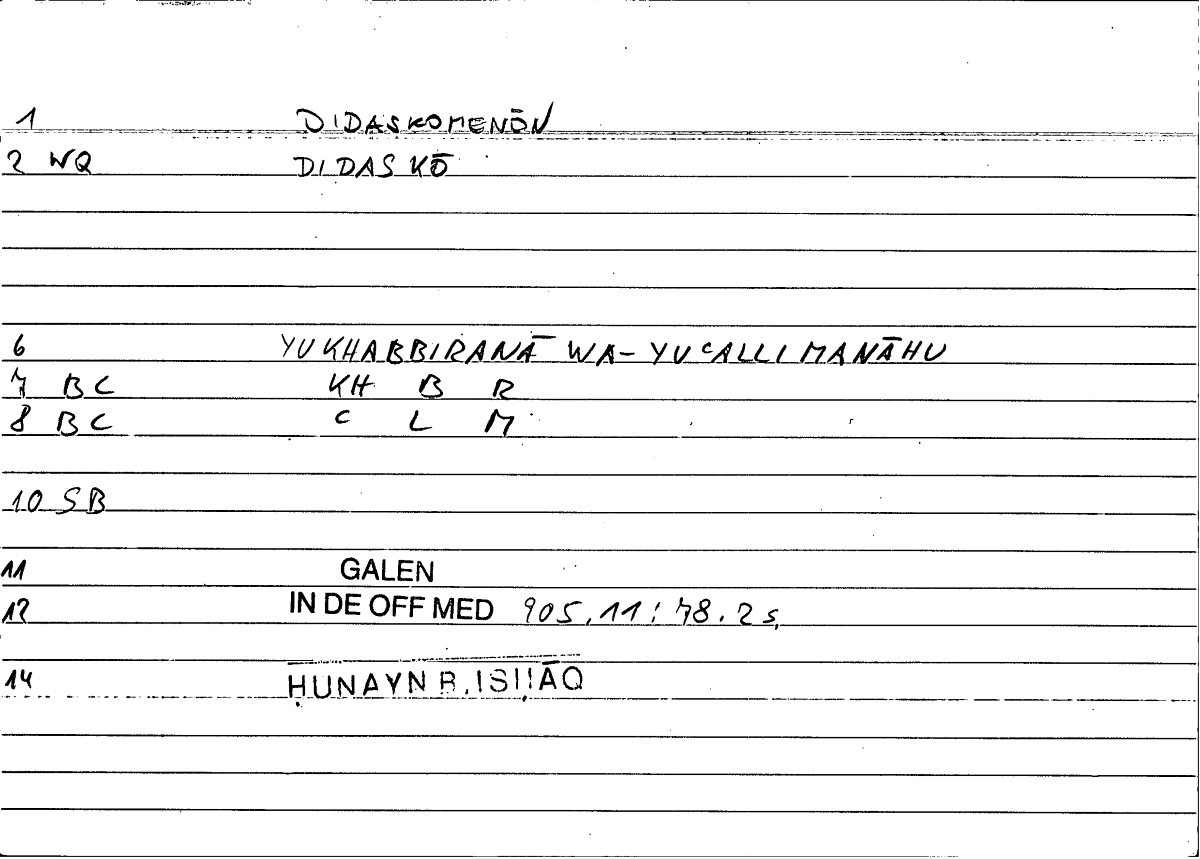 1 DIDASKOMENŌN
2 WQ DIDASKŌ
6 YUKHABBIRANĀ WA-YUᶜALLIMANĀHU
7 BC KH B R
8 BC ᶜ L M
10 SB
11 GALEN
12 IN DE OFF MED 905.11 : 78.2 s.
14 ḤUNAYN B. ISḤĀQ